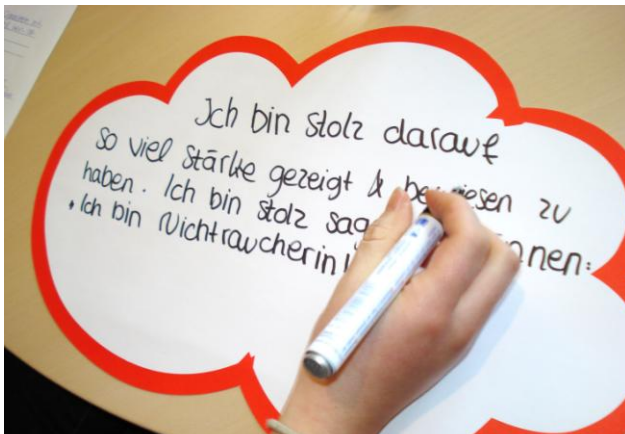 Ich bin stolz darauf
so viel Stärke gezeigt & bewiesen zu
haben. Ich bin stolz sag
nnen:
"Ich bin Nichtraucherin!